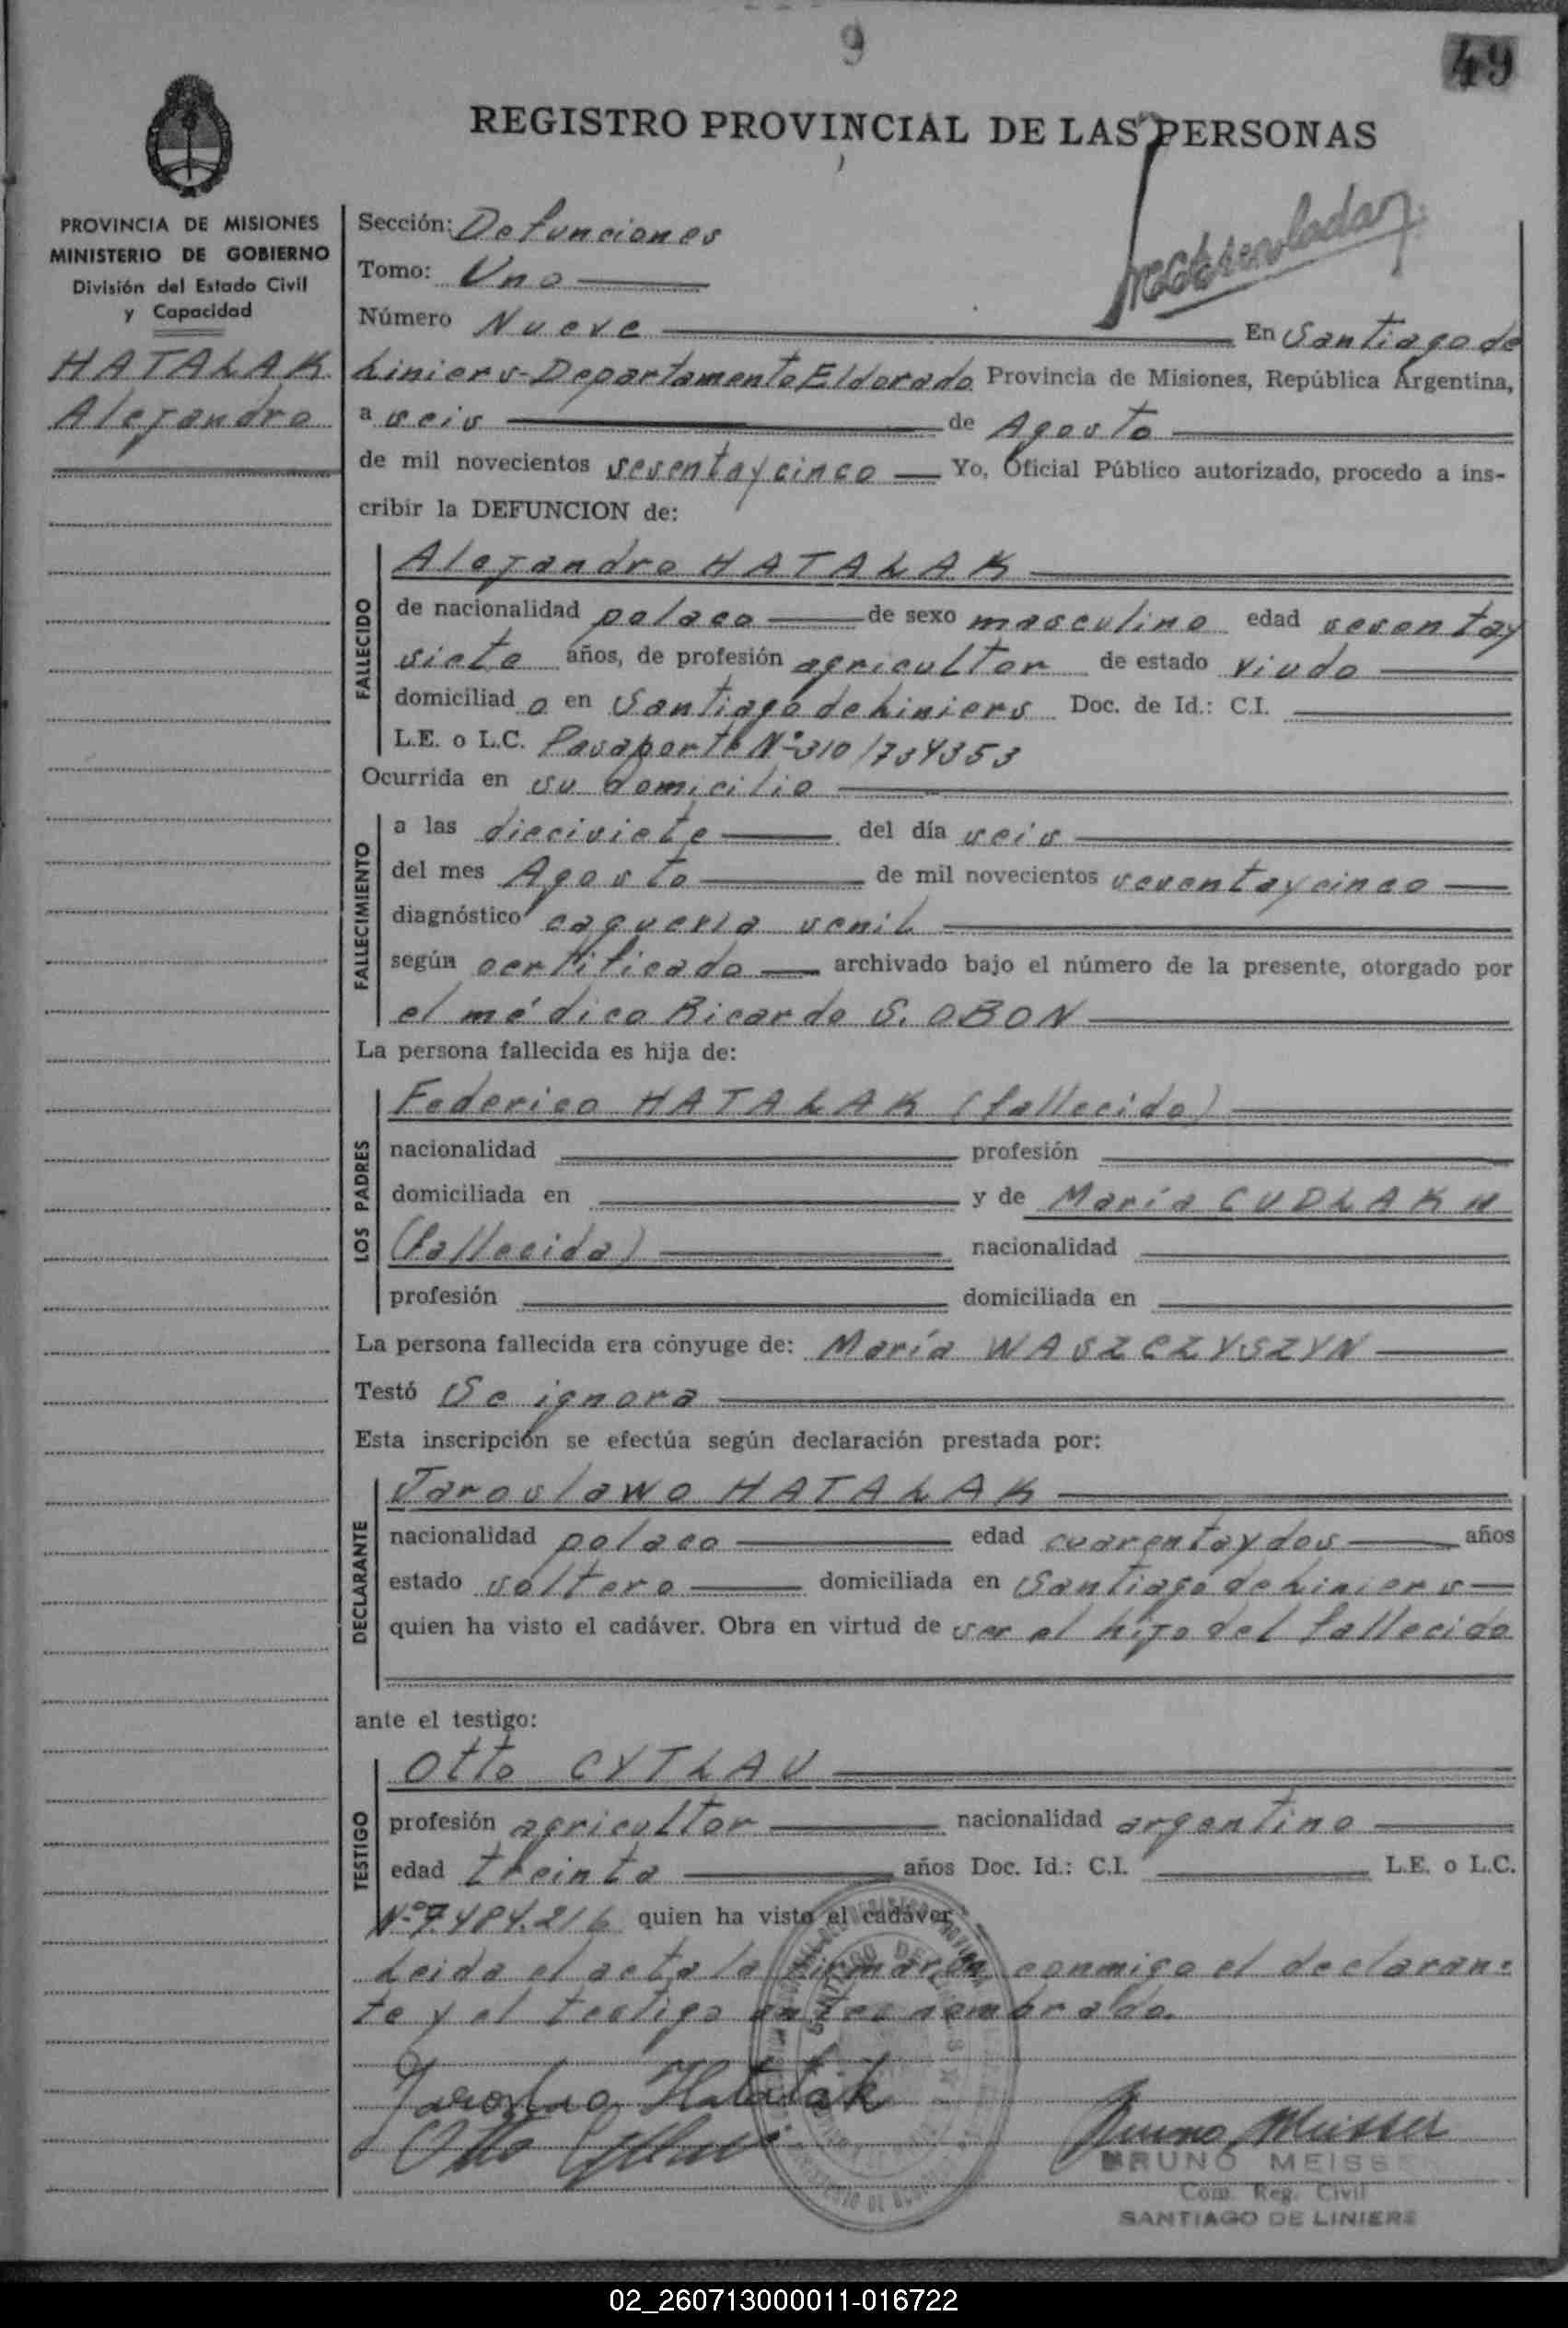 9
49
REGISTRO PROVINCIAL DE LAS PERSONAS
PROVINCIA DE MISIONES
MINISTERIO DE GOBIERNO
División del Estado Civil
y Capacidad
HATALAK
Alejandro
Sección: Defunciones
Tomo: Uno
Número Nueve En Santiago de
Liniers-Departamento Eldorado Provincia de Misiones, República Argentina,
a seis de Agosto
de mil novecientos sesentaycinco Yo, Oficial Público autorizado, procedo a ins-
cribir la DEFUNCION de:
FALLECIDO
Alejandro HATALAK
de nacionalidad polaco de sexo masculino edad sesentay
siete años, de profesión agricultor de estado viudo
domiciliado en Santiago de Liniers Doc. de Id.: C.I.
L.E. o L.C. Pasaporte Nº 310/734353
Ocurrida en su domicilio
FALLECIMIENTO
a las diecisiete del día seis
del mes Agosto de mil novecientos sesentaycinco
diagnóstico caquexia senil
según certificado archivado bajo el número de la presente, otorgado por
el médico Ricardo S. OBON
La persona fallecida es hija de:
LOS PADRES
Federico HATALAK (fallecido)
nacionalidad profesión
domiciliada en y de María CUDLAK H
(fallecida) nacionalidad
profesión domiciliada en
La persona fallecida era cónyuge de: María WASZCZYSZYN
Testó Se ignora
Esta inscripción se efectúa según declaración prestada por:
DECLARANTE
Jaroslawo HATALAK
nacionalidad polaco edad cuarentaydos años
estado soltero domiciliada en Santiago de Liniers
quien ha visto el cadáver. Obra en virtud de ser el hijo del fallecido
ante el testigo:
TESTIGO
Otto CYTLAU
profesión agricultor nacionalidad argentino
edad treinta años Doc. Id.: C.I. L.E. o L.C.
Nº 7.484.216 quien ha visto el cadáver
Leida el acta la firmaron conmigo el declaran-
te y el testigo antes nombrado.
Jaroslao Hatalak
Otto Cytlau
Bruno Meisser
BRUNO MEISS
Com. Reg. Civil
SANTIAGO DE LINIERS
02_260713000011-016722